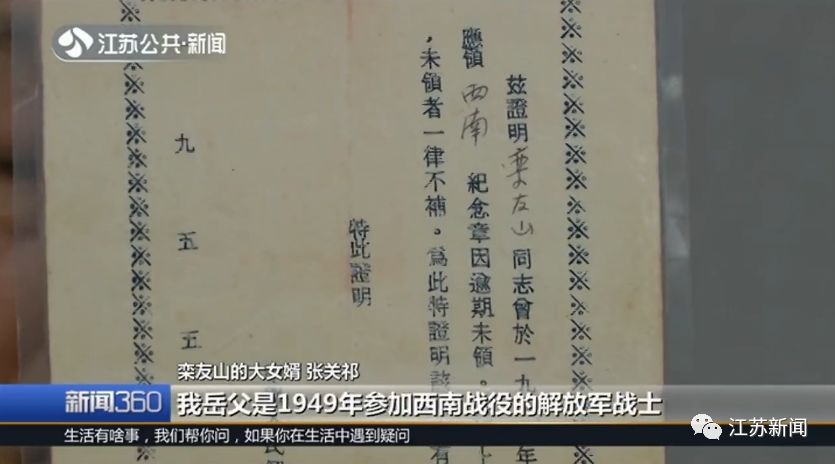 江苏公共·新闻
茲證明栾友山同志曾於一九年
應領西南紀念章因逾期未領。上
，未領者一律不補。為此特證明有
特此證明
九五五
栾友山的大女婿 张关祁
新闻360
我岳父是1949年参加西南战役的解放军战士
生活有啥事，我们帮你问，如果你在生活中遇到疑问
江苏新闻